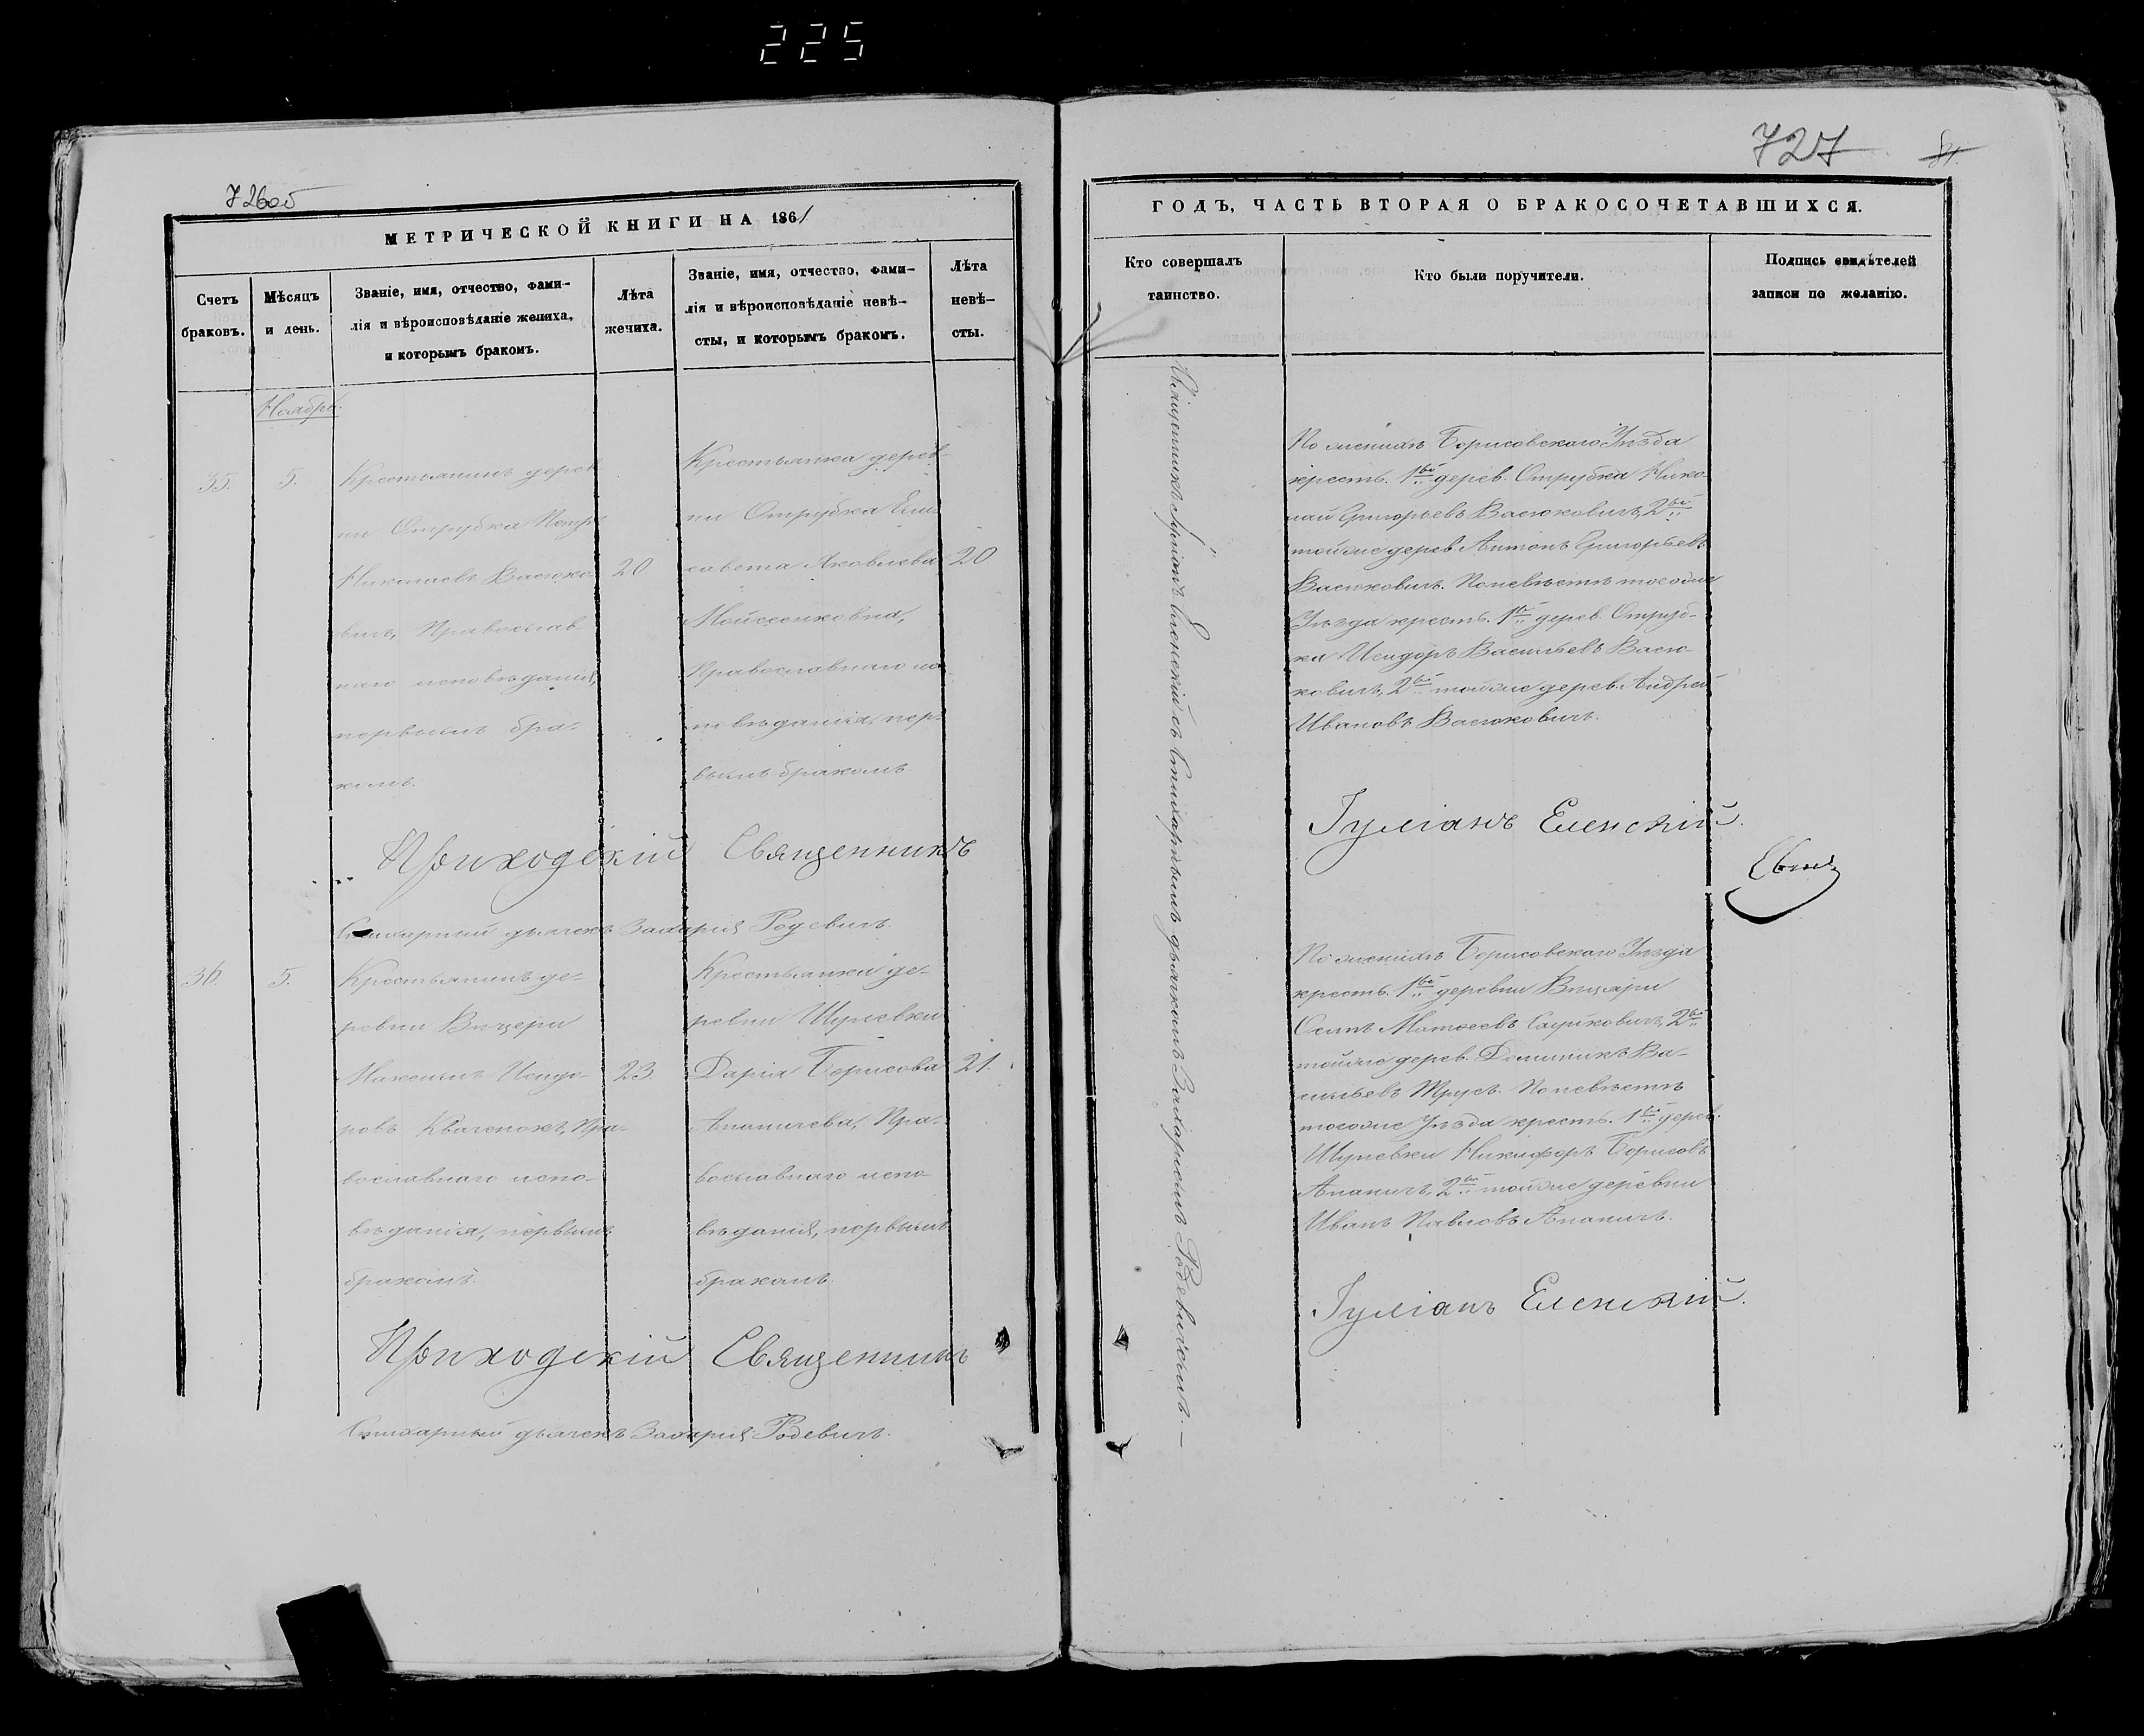 225
726об
МЕТРИЧЕСКОЙ КНИГИ НА 1861
Счетъ браковъ.
Мѣсяцъ и день.
Званіе, имя, отчество, фами-
лія и вѣроисповѣданіе жениха,
и которымъ бракомъ.
Лѣта
жениха.
Званіе, имя, отчество, фами-
лія и вѣроисповѣданіе невѣ-
сты, и которымъ бракомъ.
Лѣта
невѣ-
сты.
Ноябрь.
35.
5.
Крестьянинъ дерев
ни Отрубка Петръ
Николаевъ Васюко
вичъ, Православ
наго исповѣданія,
первымъ бра-
комъ.
20.
Крестьянка дерев
ни Отрубка Ели
савета Яковлева
Мойсеенковна,
Православнаго ис
повѣданія, пер-
вымъ бракомъ
20
Приходскій Священникъ
Стихарный дьячекъ Захарія Родевичъ.
36.
5.
Крестьянинъ де-
ревни Вицери
Максимъ Исидо-
ровъ Кваченокъ, Пра-
вославнаго испо-
вѣданія, первымъ
бракомъ.
23
Крестьянка де-
ревни Шулевки
Дарія Борисова
Апаничева, Пра-
вославнаго испо
вѣданія, первымъ
бракомъ.
21.
Приходскій Священникъ
Стихарный дьячекъ Захарія Родевичъ.
727
81.
ГОДЪ, ЧАСТЬ ВТОРАЯ О БРАКОСОЧЕТАВШИХСЯ.
Кто совершалъ
таинство.
Кто были поручители.
Подпись свидѣтелей
записи по желанію.
Священникъ Іуліанъ Еленскій съ Стихарнымъ дьячкомъ Захаріемъ Родевичемъ.—
По женихѣ Борисовскаго Уѣзда
крестъ. 1вый дерев. Отрубка Нико-
лай Григорьевъ Васюковичъ, 2вый
тойже дерев. Антонъ Григорьевъ
Васюковичъ. По невѣстѣ тогоже
Уѣзда крестъ. 1вый дерев. Отруб-
ка Исидоръ Васильевъ Васю-
ковичъ, 2вый тойже дерев. Андрей
Ивановъ Васюковичъ.
Іуліанъ Еленскій.
По женихѣ Борисовскаго Уѣзда
крестъ. 1вый деревни Вицяри
Осипъ Матѳеевъ 2вый
тойже дерев. Доминикъ Ва-
сильевъ Трусъ. По невѣстѣ
тогоже Уѣзда крестъ. 1вый дерев.
Шулевки Никифоръ Борисовъ
Апаничъ, 2вый тойже деревни
Иванъ Павловъ Апаничъ.
Іуліанъ Еленскій.